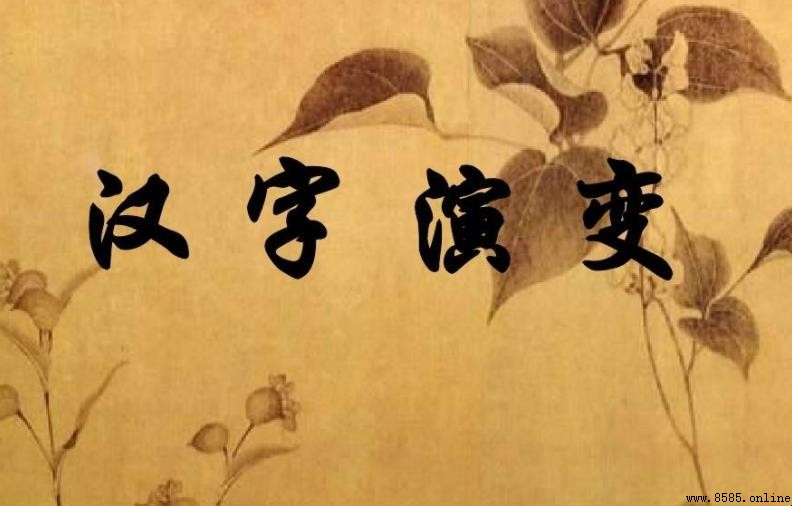 汉字演变
www.8585.online